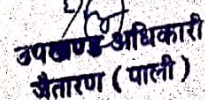 उपखण्ड अधिकारी
जैतारण ( पाली )